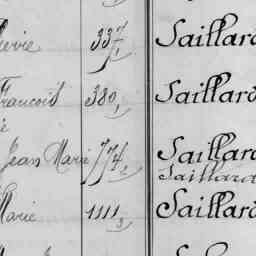 337, Saillard
François 380, Saillard
Jean Marie 774, 2 Saillard
Saillard
Marie 1111, 3 Saillard